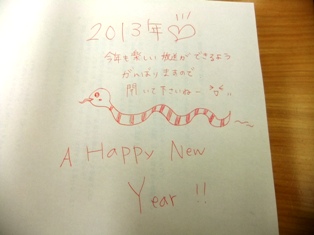 2013年♡
今年も楽しい放送ができるよう
がんばりますので
聞いて下さいねー
A Happy New
Year !!